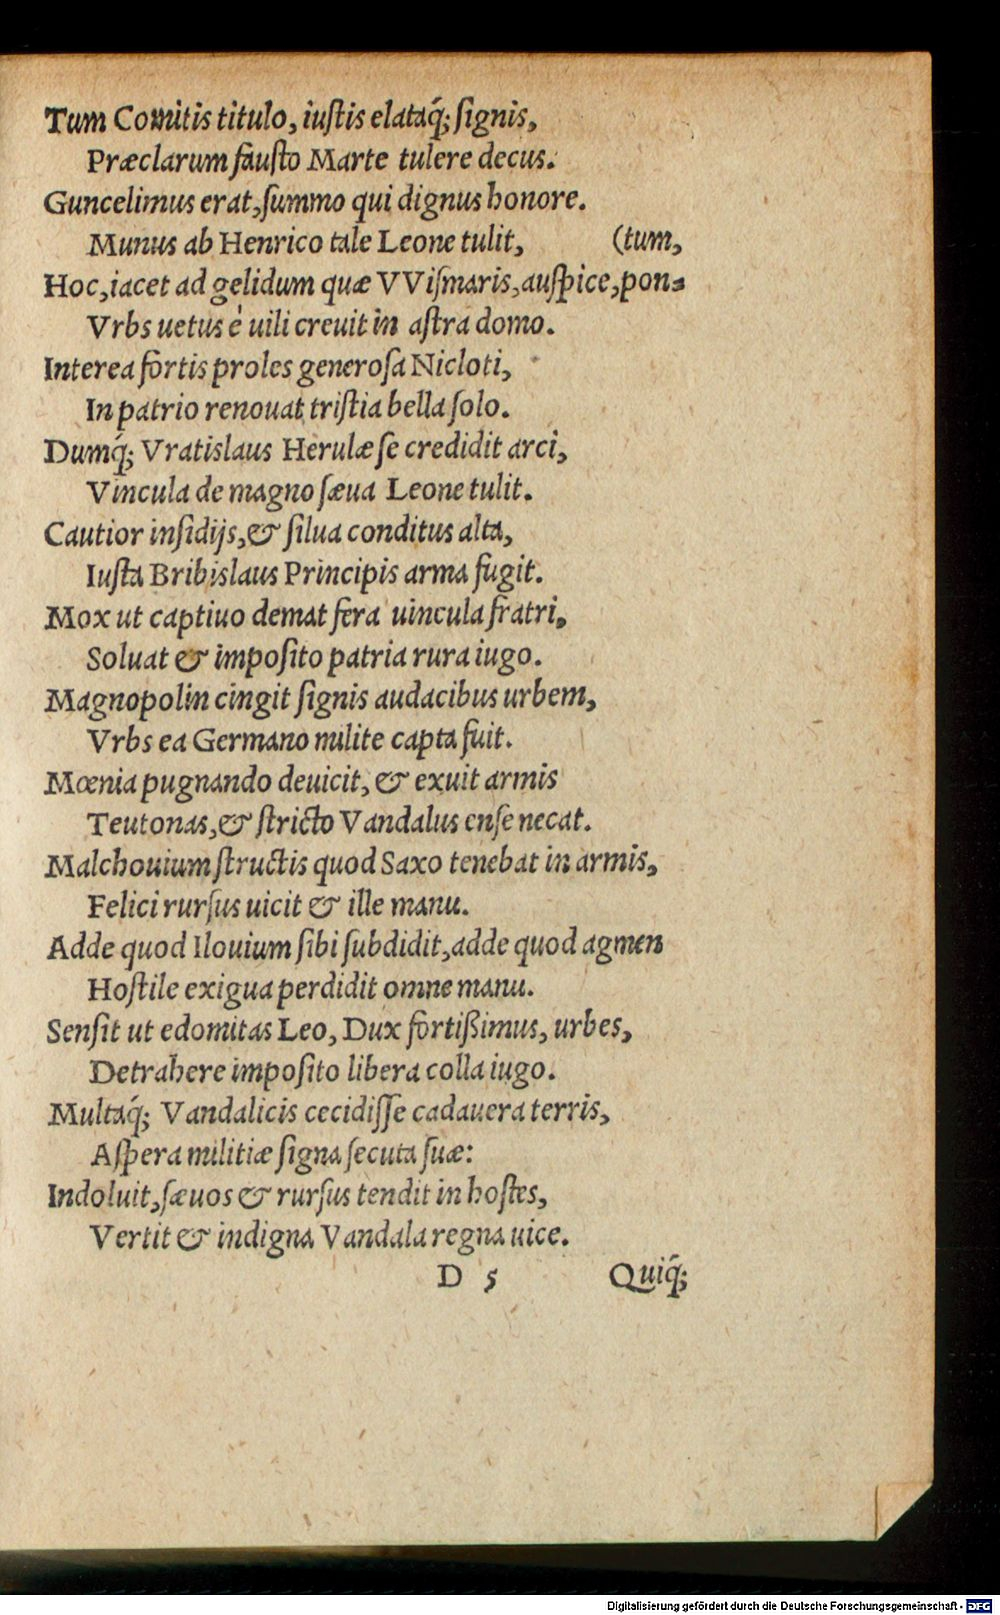 Tum Comitis titulo, iuſtis elataq́; ſignis,
Præclarum fauſto Marte tulere decus.
Guncelimus erat, ſummo qui dignus honore.
Munus ab Henrico tale Leone tulit, (tum,
Hoc, iacet ad gelidum quæ VViſmaris, auſpice, pon⸗
Vrbs uetus è uili creuit in aſtra domo.
Interea fortis proles generoſa Nicloti,
In patrio renouat triſtia bella ſolo.
Dumq́; Vratislaus Herulæ ſe credidit arci,
Vincula de magno ſæua Leone tulit.
Cautior inſidijs, & ſilua conditus alta,
Iuſta Bribislaus Principis arma fugit.
Mox ut captiuo demat fera uincula fratri,
Soluat & impoſito patria rura iugo.
Magnopolin cingit ſignis audacibus urbem,
Vrbs ea Germano milite capta fuit.
Mœnia pugnando deuicit, & exuit armis
Teutonas, & ſtricto Vandalus enſe necat.
Malchouium ſtructis quod Saxo tenebat in armis,
Felici rurſus uicit & ille manu.
Adde quod Ilouium ſibi ſubdidit, adde quod agmen
Hoſtile exigua perdidit omne manu.
Senſit ut edomitas Leo, Dux fortißimus, urbes,
Detrahere impoſito libera colla iugo.
Multaq́; Vandalicis cecidiſſe cadauera terris,
Aſpera militiæ ſigna ſecuta ſuæ:
Indoluit, ſæuos & rurſus tendit in hoſtes,
Vertit & indigna Vandala regna uice.
D 5 Quiq́;
Digitalisierung gefördert durch die Deutsche Forschungsgemeinschaft - DFG